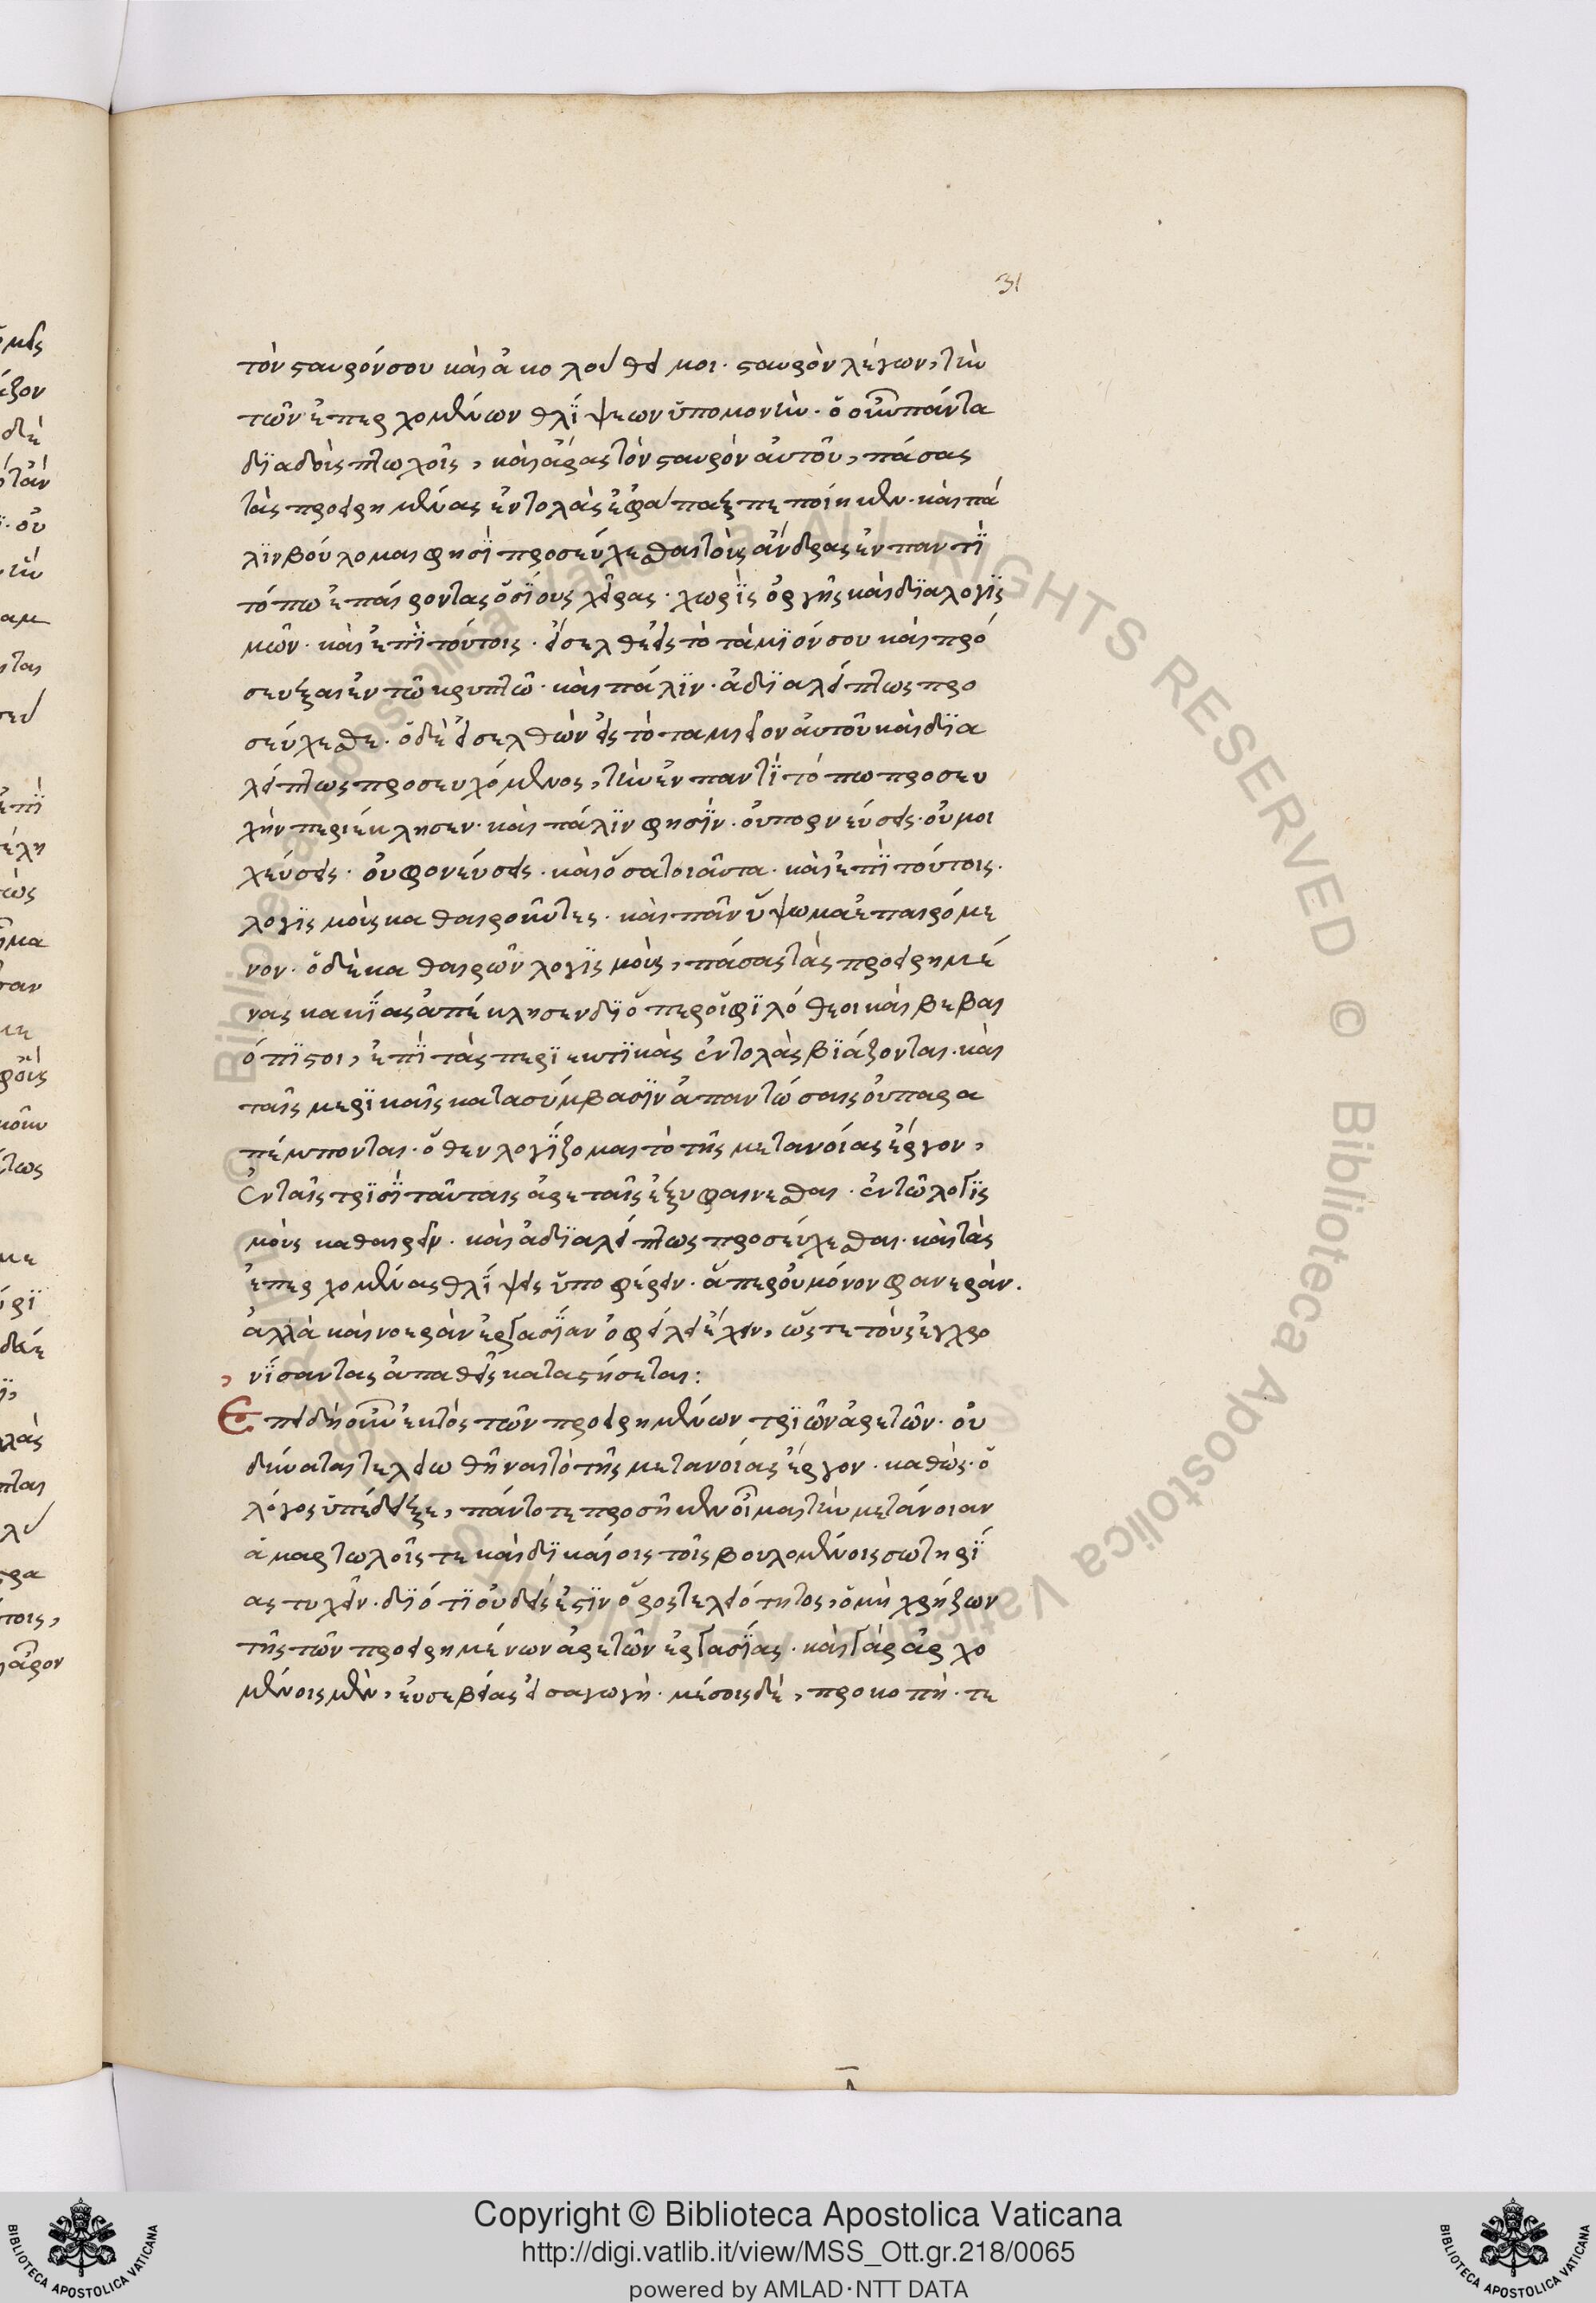 31
τὸν σαυρόν σου καὶ ἀκολούθει μοι· σταυρὸν λέγων, τὴν
τῶν ἐπερχομένων θλίψεων ὑπομονήν· ὁ οὖν πάντα
διαδοὺς πτωχοῖς, καὶ ἄρας τὸν σταυρὸν αὐτοῦ, πάσας
τὰς προειρημένας ἐντολὰς ἐφάπαξ πεποίηκεν· καὶ πά
λϊν βούλομαι φησῒ προσεύχεσθαι τοὺς ἄνδρας ἐν παντῒ
τόπω ἐπαίροντας ὁσΐους χεῖρας· χωρῒς ὀργῆς καὶ διαλογϊς
μῶν· καὶ ἐπῒ τούτοις· εἴσελθε εἰς τὸ ταμϊόν σου καὶ πρό
σευξαι ἐν τῶ κρυπτῶ· καὶ πάλϊν· ἀδϊαλείπτως προ
σεύχεσθε· ὁ δὲ εἰσελθὼν εἰς τὸ ταμιεῖον αὐτοῦ καὶ δϊα
λείπτως προσευχόμενος, τὴν ἐν παντῒ τόπω προσευ
χὴν περιέκλησεν· καὶ πάλϊν φησῒν· οὐ πορνεύσεις· οὐ μοι
χεύσεις· οὐ φονεύσεις· καὶ ὅσα τοιαῦτα· καὶ ἐπῒ τούτοις·
λογϊσμοὺς καθαιροῦντες· καὶ πᾶν ὕψωμα ἐπαιρόμε
νον· ὁ δὲ καθαιρῶν λογϊσμοὺς, πάσας τὰς προειρημέ
νας κακΐας ἀπέκλησεν δϊόπερ οἱ φϊλόθεοι καὶ βεβαι
όπϊστοι, ἐπῒ τὰς περϊεκτϊκὰς ἐντολὰς βϊάζονται· καὶ
ταῖς μερϊκαῖς κατασύμβασϊν ἀπαντώσαις οὐ παρα
πέμπονται· ὅθεν λογΐζομαι τὸ τῆς μετανοίας ἔργον,
ἐν ταῖς τρϊσῒ ταύταις ἀρεταῖς ἐξυφαίνεσθαι· ἐν τῶ λογϊς
μοὺς καθαιρεῖν· καὶ ἀδϊαλείπτως προσεύχεσθαι· καὶ τὰς
ἐπερχομένας θλΐψεις ὑποφέρειν· ἅπερ οὐ μόνον φανερὰν·
ἀλλὰ καὶ νοερὰν ἐργασΐαν ὀφείλει ἔχειν, ὥστε τοὺς ἐγχρο
νΐσαντας ἀπαθεῖς καταστήσεται:
Ἐπειδὴ οὖν ἐκτὸς τῶν προειρημένων τρϊῶν ἀρετῶν· οὐ
δύναται τελειωθῆναι τὸ τῆς μετανοίας ἔργον· καθὼς ὁ
λόγος ὑπέδειξε, πάντοτε προσῆκεν οἶμαι τὴν μετάνοιαν
ἁμαρτωλοῖς τε καὶ δϊκαίοις τοῖς βουλομένοις σωτηρΐ
ας τυχεῖν· δϊότϊ οὐδεὶς ἐστϊν ὅρος τελειότητος, ὁ μὴ χρήζων
τῆς τῶν προειρημένων ἀρετῶν ἐργασΐας· καὶ γὰρ ἀρχο
μένοις μὲν, εὐσεβείας εἰσαγωγὴ· μέσοις δὲ, προκοπή· τε
Copyright © Biblioteca Apostolica Vaticana
http://digi.vatlib.it/view/MSS_Ott.gr.218/0065
powered by AMLAD·NTT DATA